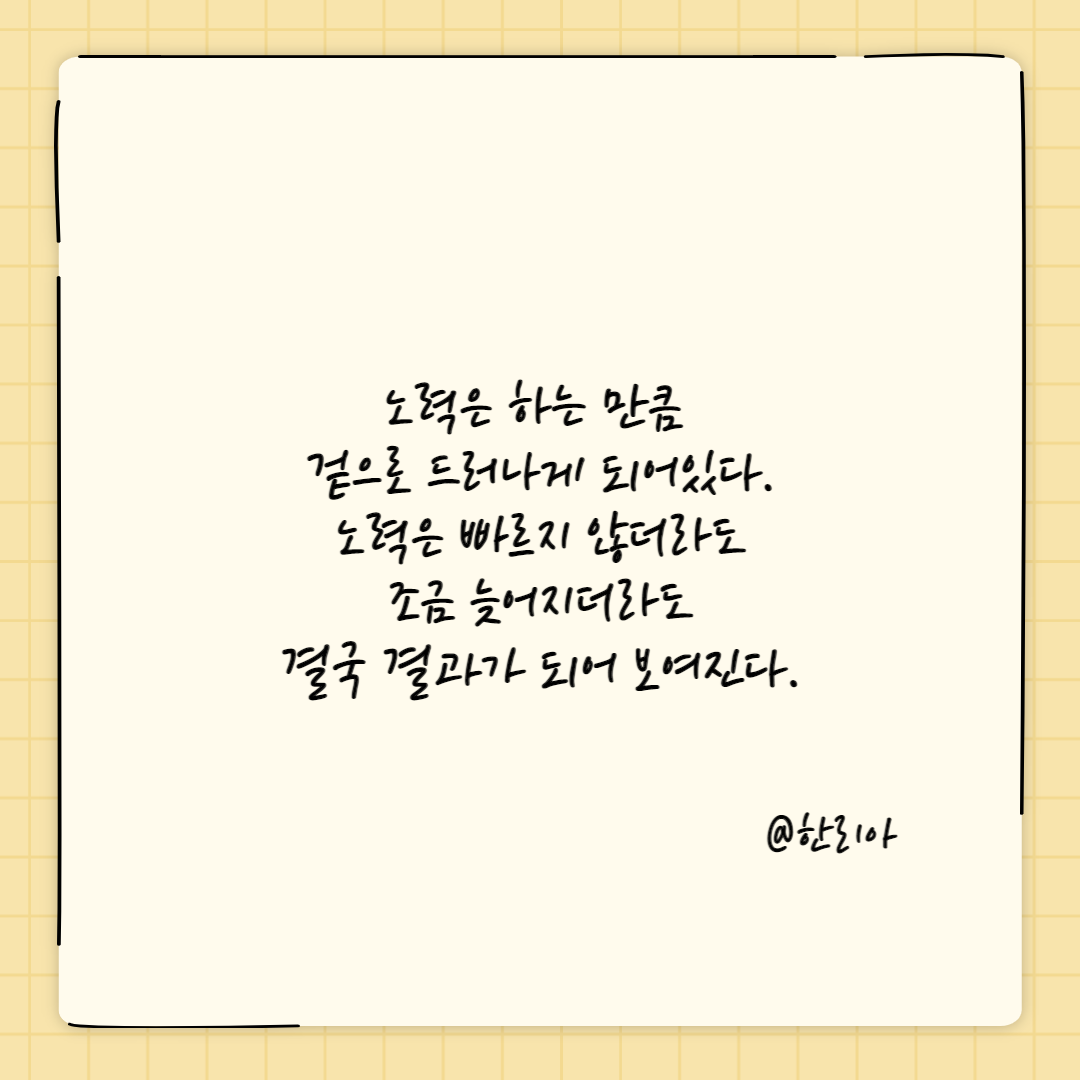 노력은 하는 만큼
겉으로 드러나게 되어있다.
노력은 빠르지 않더라도
조금 늦어지더라도
결국 결과가 되어 보여진다.
@한리아